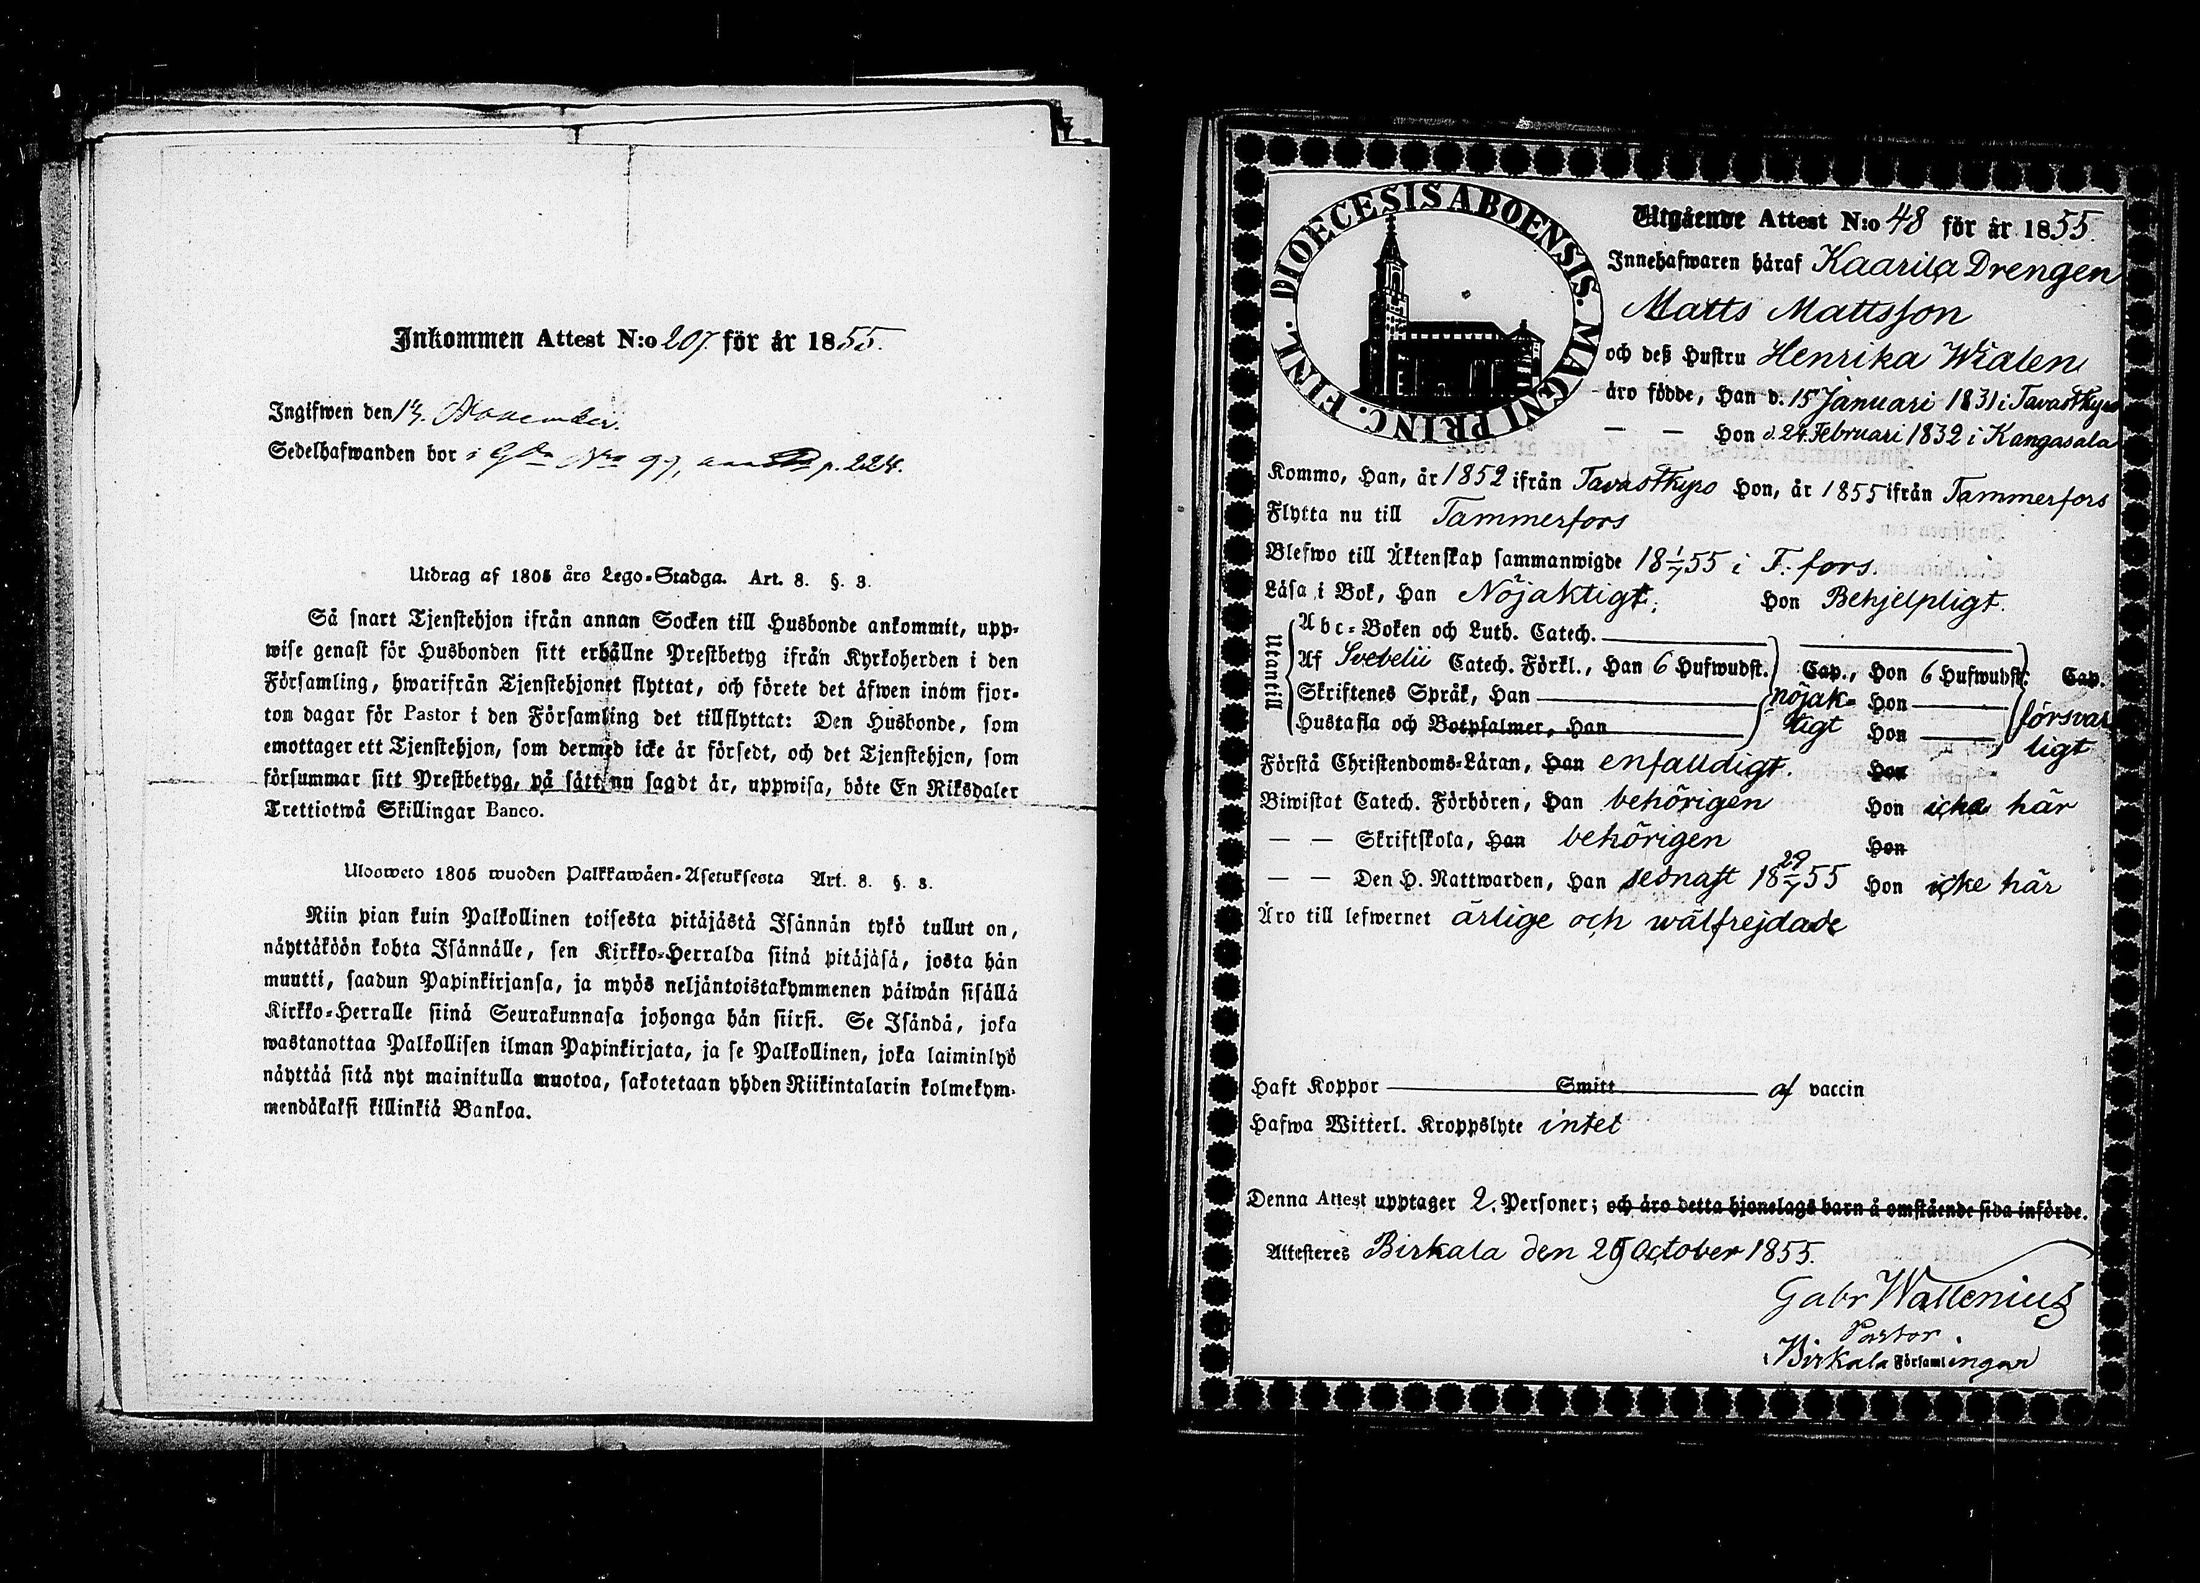 Inkommen Attest N:o 207. för år 1855.
Ingifwen den 14. November.
Sedelhafwanden bor i Gdn Nro 97, p. 224.
Utdrag af 1805 års Lego-Stadga. Art. 8. §. 3.
Så snart Tjenstehjon ifrån annan Socken till Husbonde ankommit, upp-
wise genast för Husbonden sitt erhållne Prestbetyg ifrån Kyrkoherden i den
Församling, hwarifrån Tjenstehjonet flyttat, och förete det äfwen inom fjor-
ton dagar för Pastor i den Församling det tillflyttat: Den Husbonde, som
emottager ett Tjenstehjon, som dermed icke är försedt, och det Tjenstehjon, som
försummar sitt Prestbetyg, på sätt nu sagdt är, uppwisa, böte En Riksdaler
Trettiotwå Skillingar Banco.
Ulosweto 1805 wuoden Palkkawäen-Asetuksesta Art. 8. §. 3.
Niin pian kuin Palkollinen toisesta pitäjästä Isännän tykö tullut on,
näyttäköön kohta Isännälle, sen Kirkko-Herralda siinä pitäjäsä, josta hän
muutti, saadun Papinkirjansa, ja myös neljäntoistakymmenen päiwän sisällä
Kirkko-Herralle siinä Seurakunnasa johonga hän siirsi. Se Isändä, joka
wastanottaa Palkollisen ilman Papinkirjata, ja se Palkollinen, joka laiminlyö
näyttää sitä nyt mainitulla muotoa, sakotetaan yhden Riikintalarin kolmekym-
mendäkaksi killinkiä Bankoa.
DIOECESIS ABOENSIS. MAGNI PRINC. FINL.
Utgående Attest N:o 48 för år 1855.
Innehafwaren häraf Kaarila Drengen
Matts Mattsson
och deß Hustru Henrika Wialen
äro födde, Han d. 15 Januari 1831 i Tavastkyro
— — Hon d. 24 Februari 1832 i Kangasala
Kommo, Han, år 1852 ifrån Tavastkyro Hon, år 1855 ifrån Tammerfors
Flytta nu till Tammerfors
Blefwo till Äktenskap sammanwigde 18 1/7 55 i T. fors.
Läsa i Bok, Han Nöjaktigt; Hon Behjelpligt.
Utantill
Abc-Boken och Luth. Catech.
Af Svebelii Catech. Förkl., Han 6 Hufwudst. Cap., Hon 6 Hufwudst. Cap.
Skriftenes Språk, Han nöjak- Hon försvar
Hustafla och Botpsalmer, Han tigt Hon ligt
Förstå Christendoms-Läran, Han enfalldigt. Hon
Biwistat Catech. Förhören, Han behörigen Hon icke här
— — Skriftskola, Han behörigen Hon
— — Den H. Nattwarden, Han sednast 18 29/7 55 Hon icke här
Äro till lefwernet ärlige och wälfrejdade
Haft Koppor Smitt af vaccin
Hafwa Witterl. Kroppslyte intet
Denna Attest upptager 2. Personer; och äro detta hjonelags barn å omstående sida införde.
Attesteres Birkala den 29 October 1855.
Gabr Wallenius
Pastor
i Birkala Församlingar